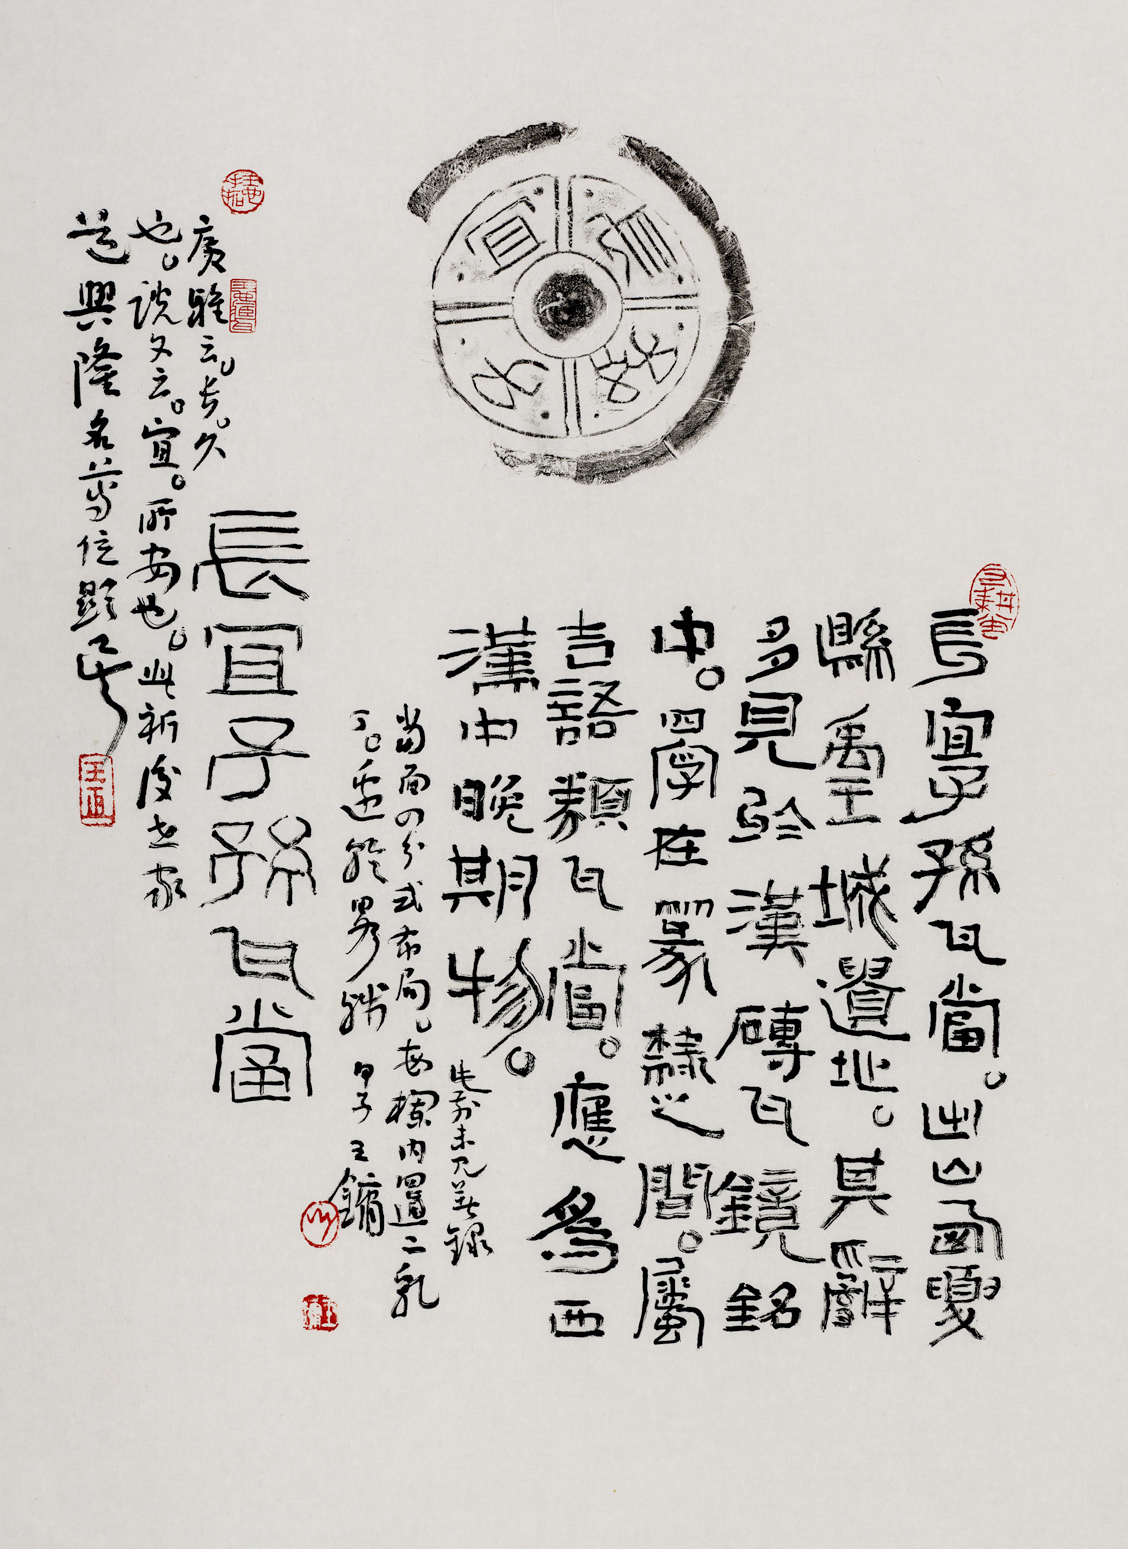 長宜子孫瓦當。出山西夏
縣禹王城遺址。其辭
多見於漢磚瓦鏡銘
中。四字在篆隸之間。屬
吉語類瓦當。應為西
漢中晚期物。
先前未見著錄
當面四分式布局。每欄內置二乳
丁。邊輪略殘 甲子王鏞
長宜子孫瓦當
廣雅云。長。久
也。說文云。宜。所安也。此祈後世家
道興隆名尊位顯
長宜子孫